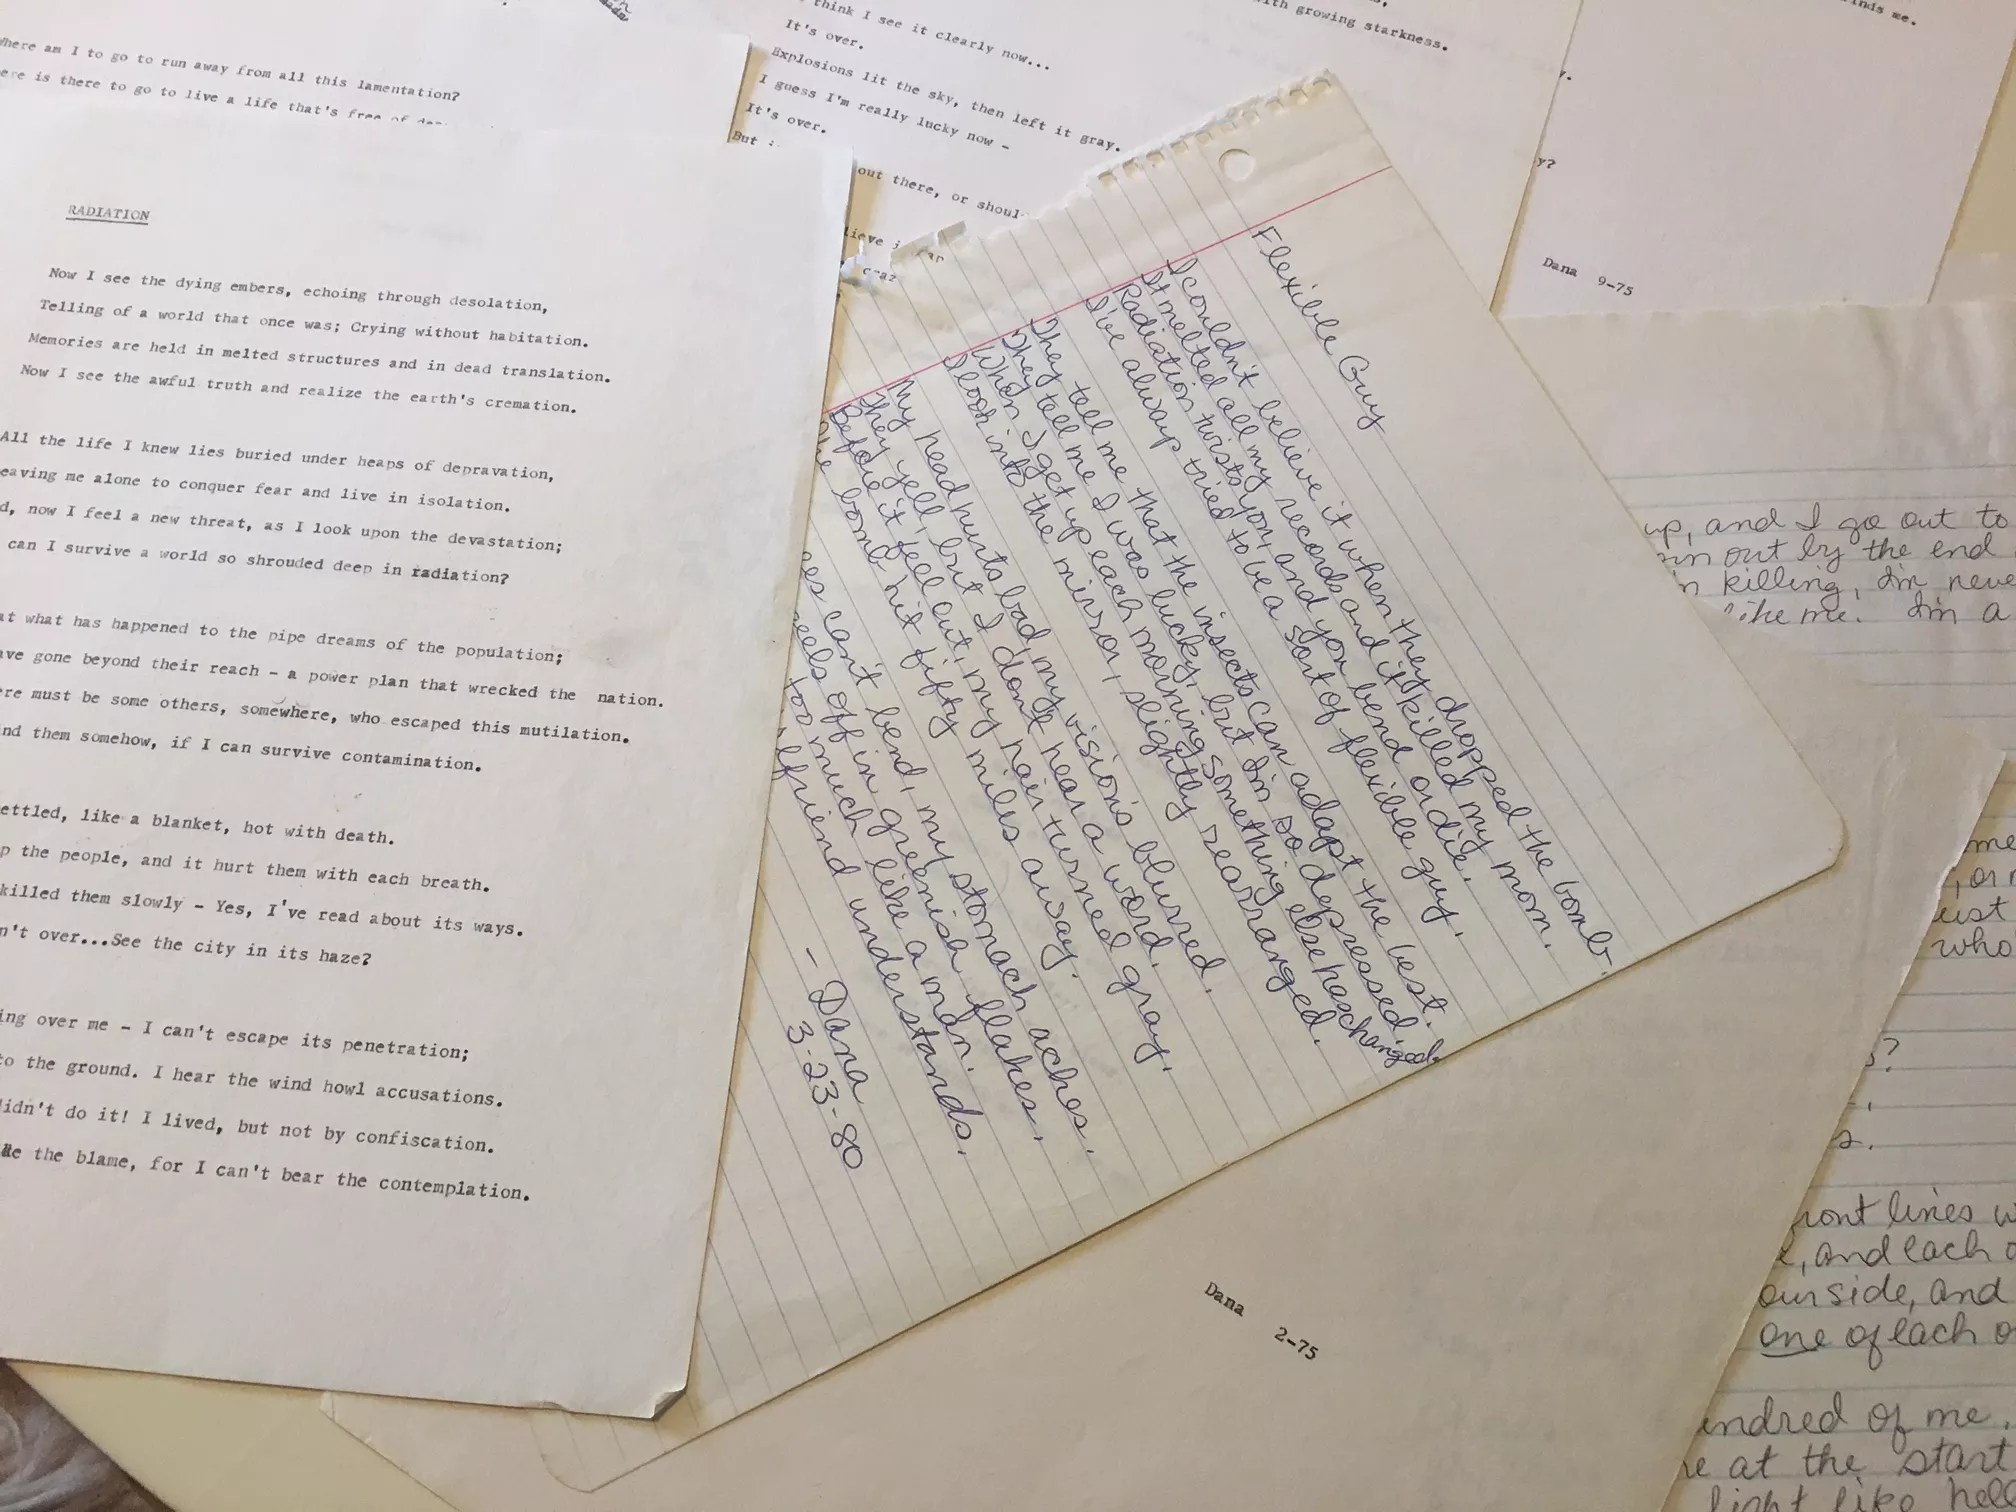 Where am I to go to run away from all this lamentation?
ere is there to go to live a life that's free of
RADIATION
Now I see the dying embers, echoing through desolation,
Telling of a world that once was; Crying without habitation.
Memories are held in melted structures and in dead translation.
Now I see the awful truth and realize the earth's cremation.
All the life I knew lies buried under heaps of depravation,
eaving me alone to conquer fear and live in isolation.
d, now I feel a new threat, as I look upon the devastation;
can I survive a world so shrouded deep in radiation?
at what has happened to the pipe dreams of the population;
ave gone beyond their reach - a power plan that wrecked the nation.
ere must be some others, somewhere, who escaped this mutilation.
nd them somehow, if I can survive contamination.
ettled, like a blanket, hot with death.
p the people, and it hurt them with each breath.
killed them slowly - Yes, I've read about its ways.
n't over...See the city in its haze?
ing over me - I can't escape its penetration;
to the ground. I hear the wind howl accusations.
didn't do it! I lived, but not by confiscation.
the blame, for I can't bear the contemplation.
think I see it clearly now...
It's over.
Explosions lit the sky, then left it gray.
I guess I'm really lucky now -
It's over.
But
out there, or shoul
lieve
th growing starkness.
inds me.
y?
Dana 9-75
Flexible Guy
I couldn't believe it when they dropped the bomb.
It melted all my records and it killed my mom.
Radiation twists you, and you bend or die.
I've always tried to be a sort of flexible guy.
They tell me that the insects can adapt the best.
They tell me I was lucky, but I'm so depressed.
When I get up each morning something else has changed.
I look into the mirror, slightly rearranged.
My head hurts bad, my vision's blurred.
They yell, but I don't hear a word.
Before it fell out, my hair turned gray.
The bomb hit fifty miles away.
es can't bend, my stomach aches.
eels off in greenish flakes.
too much like a man.
lfriend understands.
- Dana
3-23-80
Dana 2-75
up, and I go out to
out by the end
n killing, I'm neve
like me. I'm a
me
, or
ust
who'
s?
s.
ront lines w
, and each o
our side, and
one of each o
undred of me.
e at the start
light like